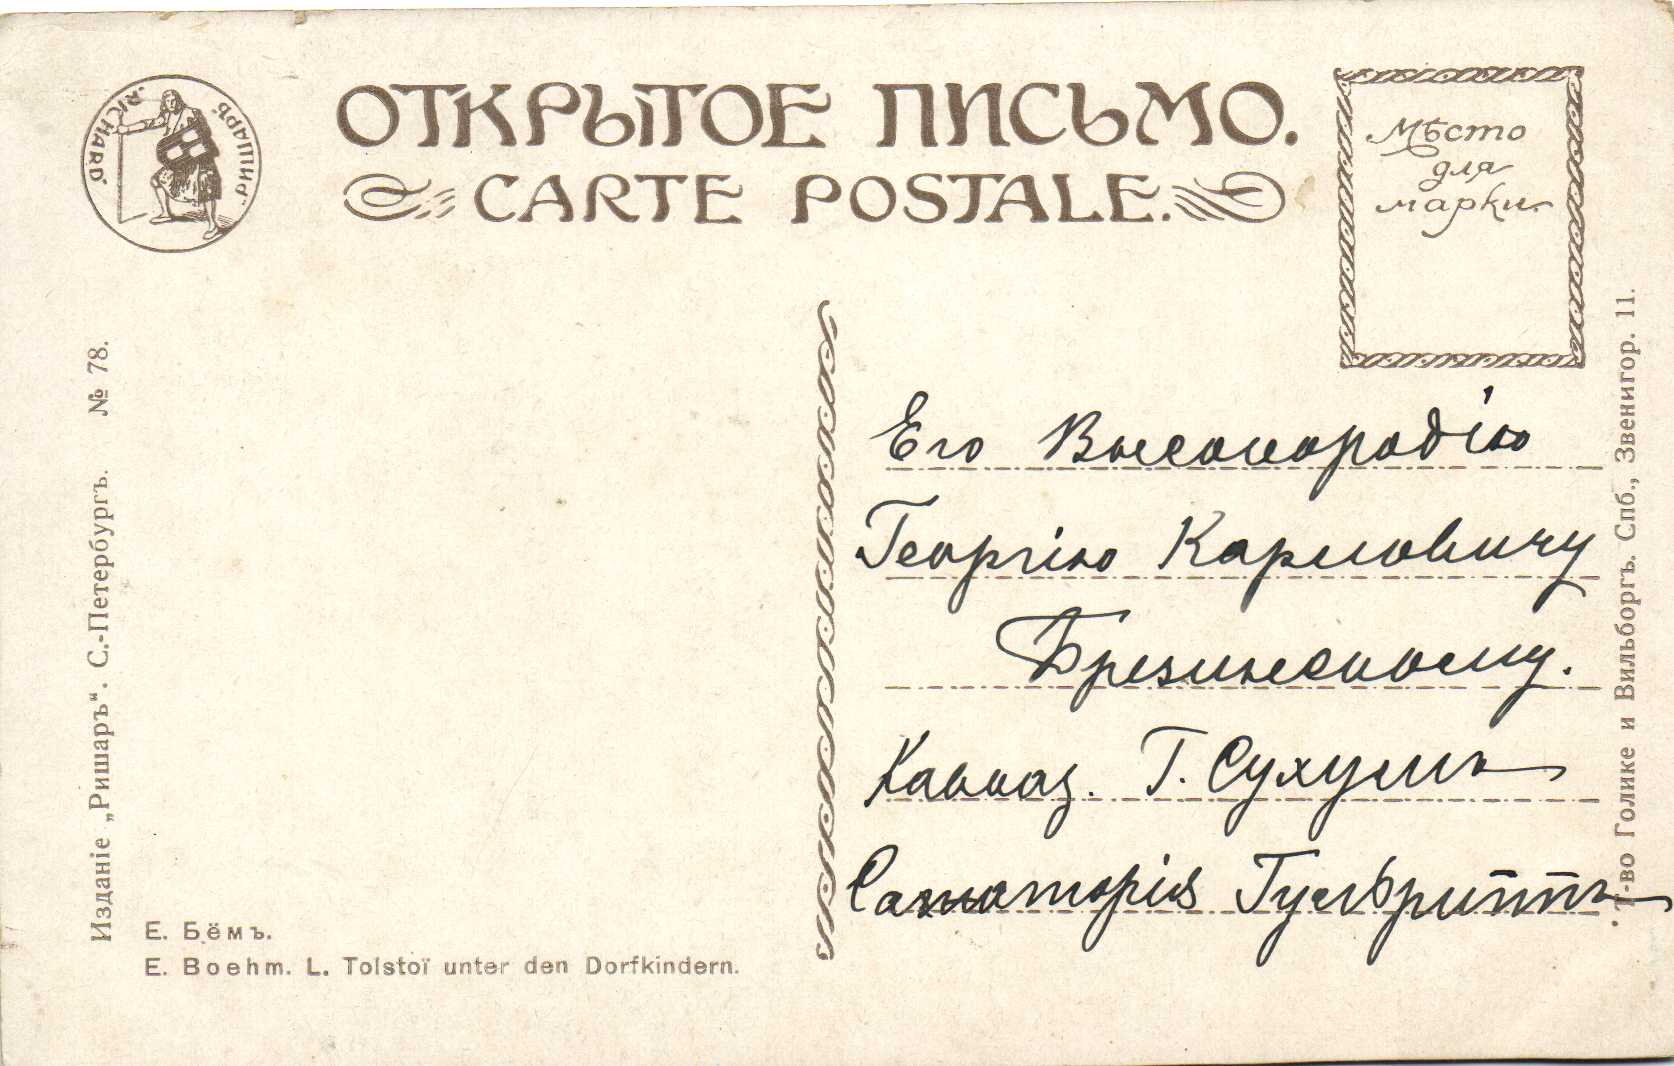 "RICHARD" "РИШАРЪ"
ОТКРЫТОЕ ПИСЬМО.
CARTE POSTALE.
Мѣсто
для
марки.
Его Высокородію
Георгію Карловичу
Брезинскому.
Кавказ. Г. Сухумъ
Санаторія Гульрипшъ
Изданіе „Ришаръ“. С.-Петербургъ. № 78.
Е. Бёмъ.
E. Boehm. L. Tolstoï unter den Dorfkindern.
Т-во Голике и Вильборгъ. Спб., Звенигор. 11.